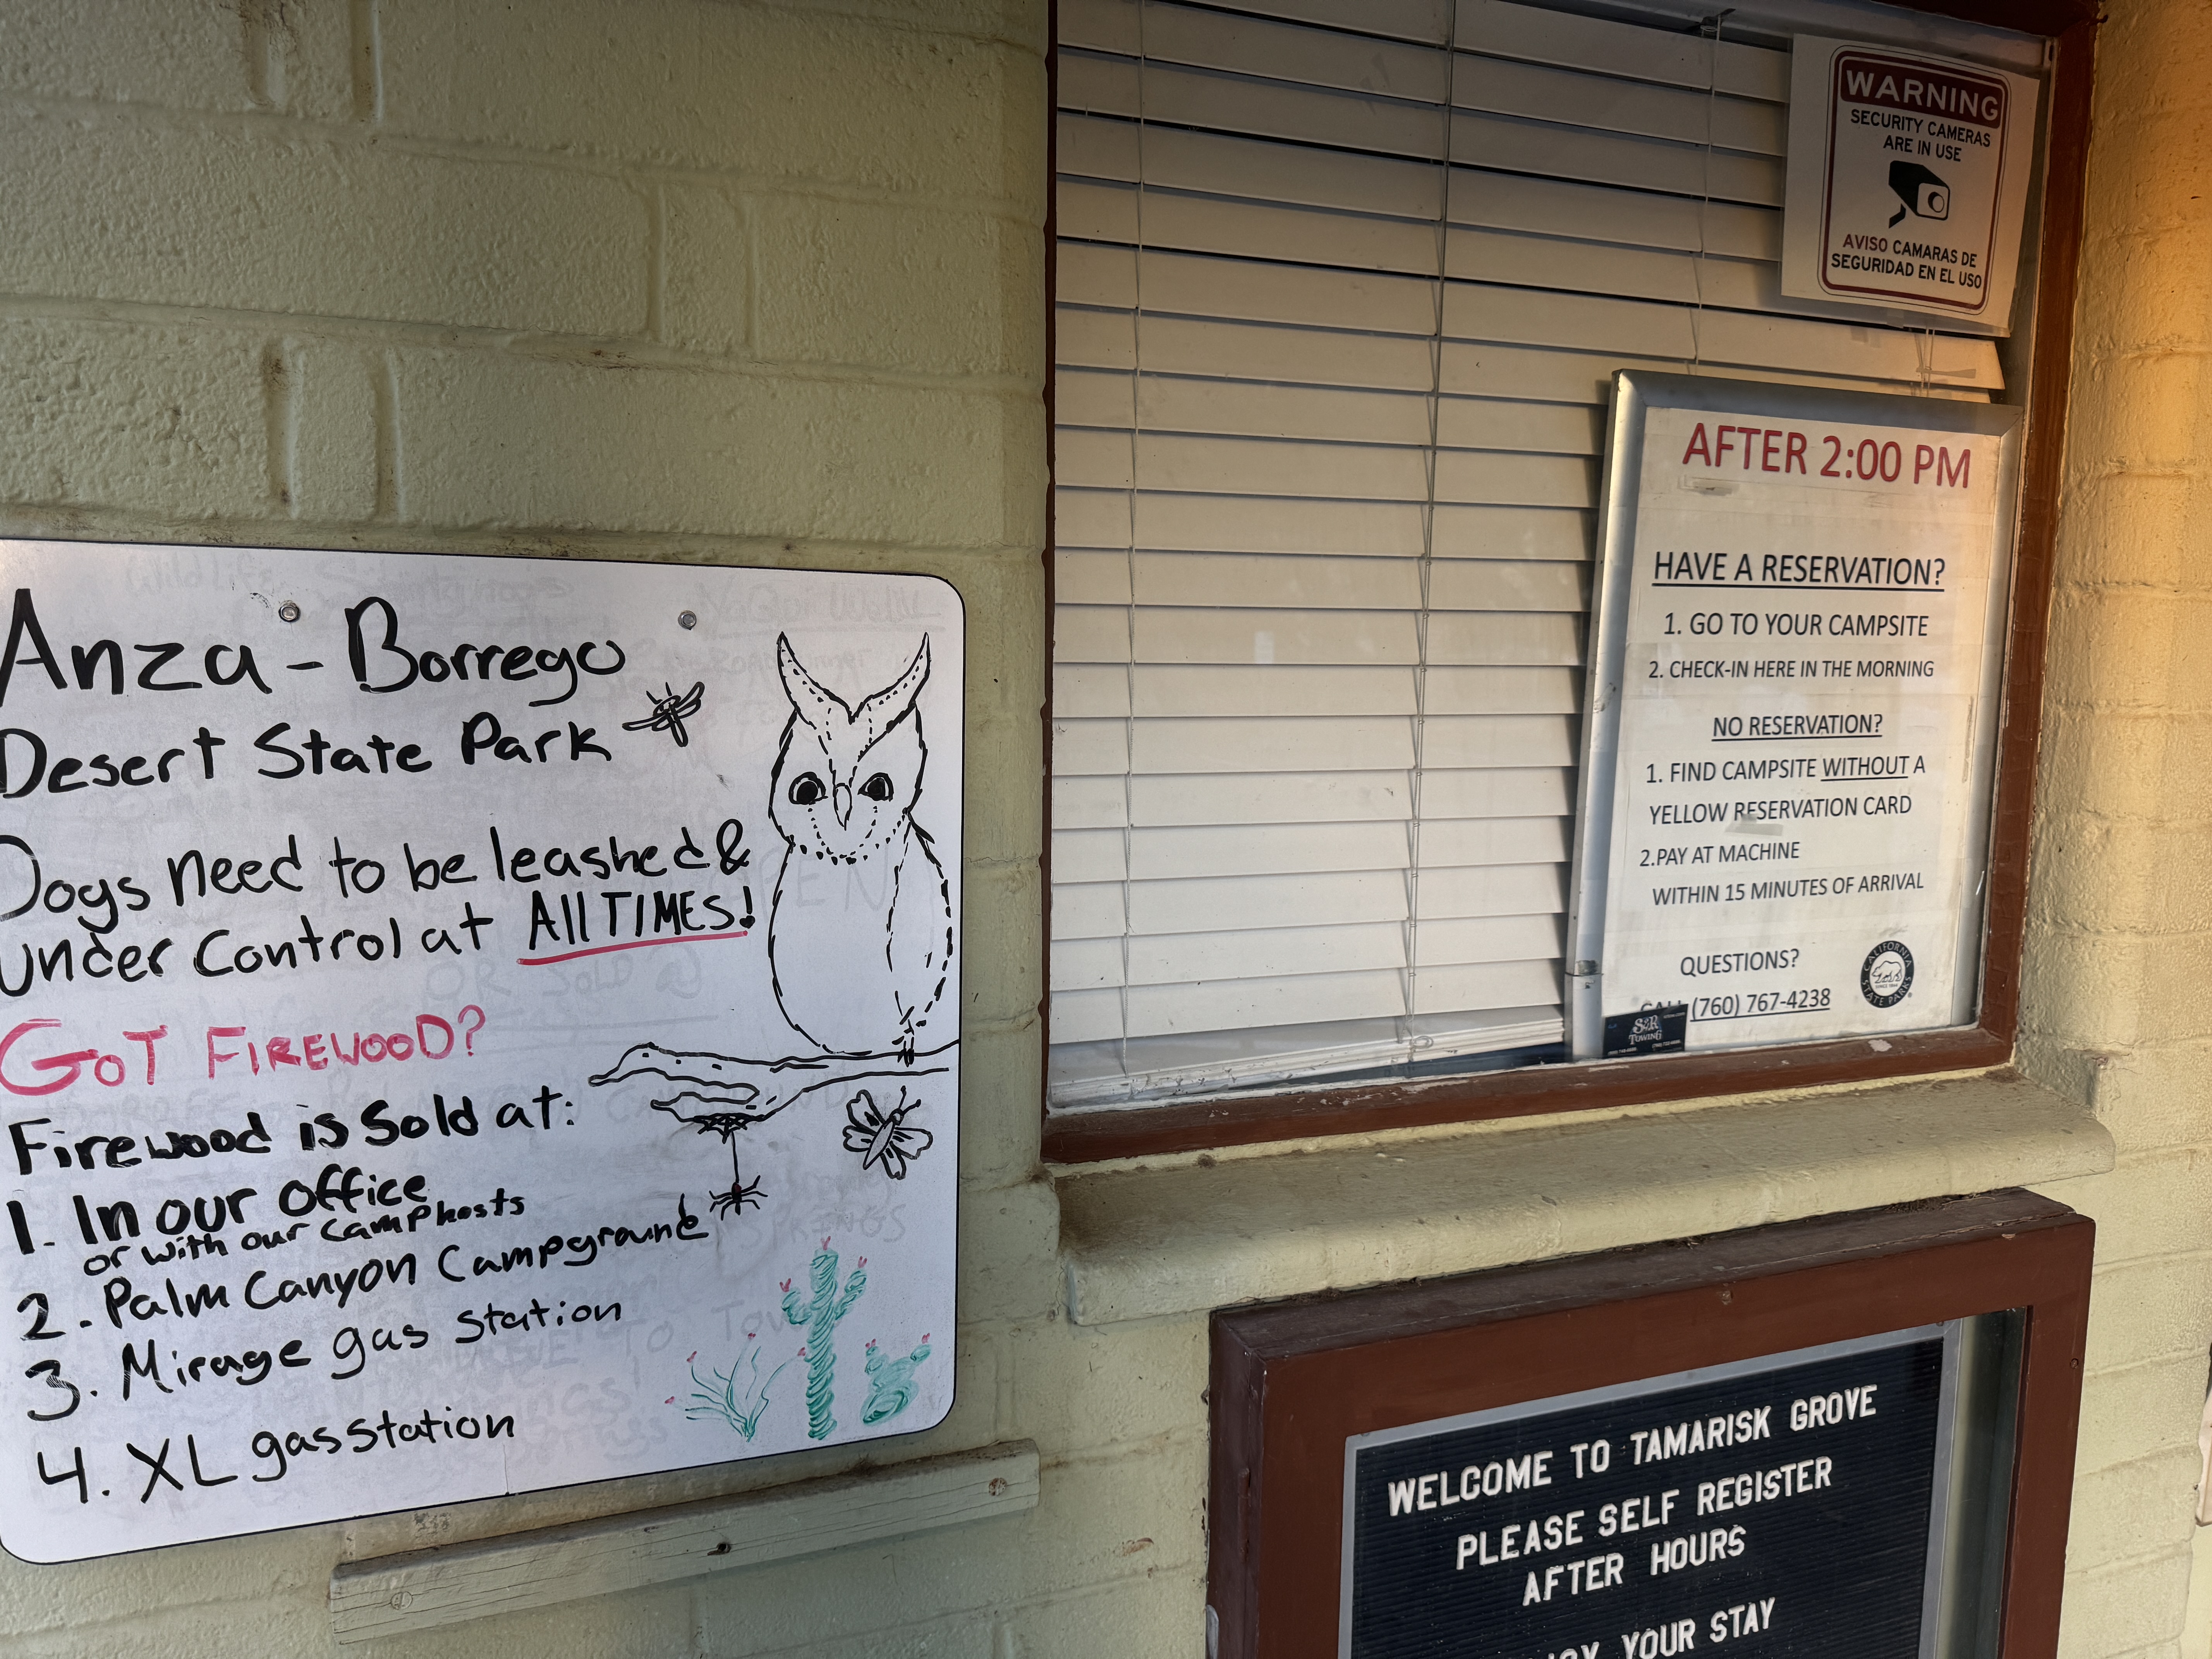 Anza-Borrego
Desert State Park
Dogs need to be leashed &
Under Control at All TIMES!
GOT FIREWOOD?
Firewood is Sold at:
1. In our office
or with our camphosts
2. Palm Canyon Campground
3. Mirage gas station
4. XL gas station
WARNING
SECURITY CAMERAS
ARE IN USE
AVISO CAMARAS DE
SEGURIDAD EN EL USO
AFTER 2:00 PM
HAVE A RESERVATION?
1. GO TO YOUR CAMPSITE
2. CHECK-IN HERE IN THE MORNING
NO RESERVATION?
1. FIND CAMPSITE WITHOUT A
YELLOW RESERVATION CARD
2.PAY AT MACHINE
WITHIN 15 MINUTES OF ARRIVAL
QUESTIONS?
CALL (760) 767-4238
CALIFORNIA
STATE PARKS
S&R
TOWING
WELCOME TO TAMARISK GROVE
PLEASE SELF REGISTER
AFTER HOURS
YOUR STAY